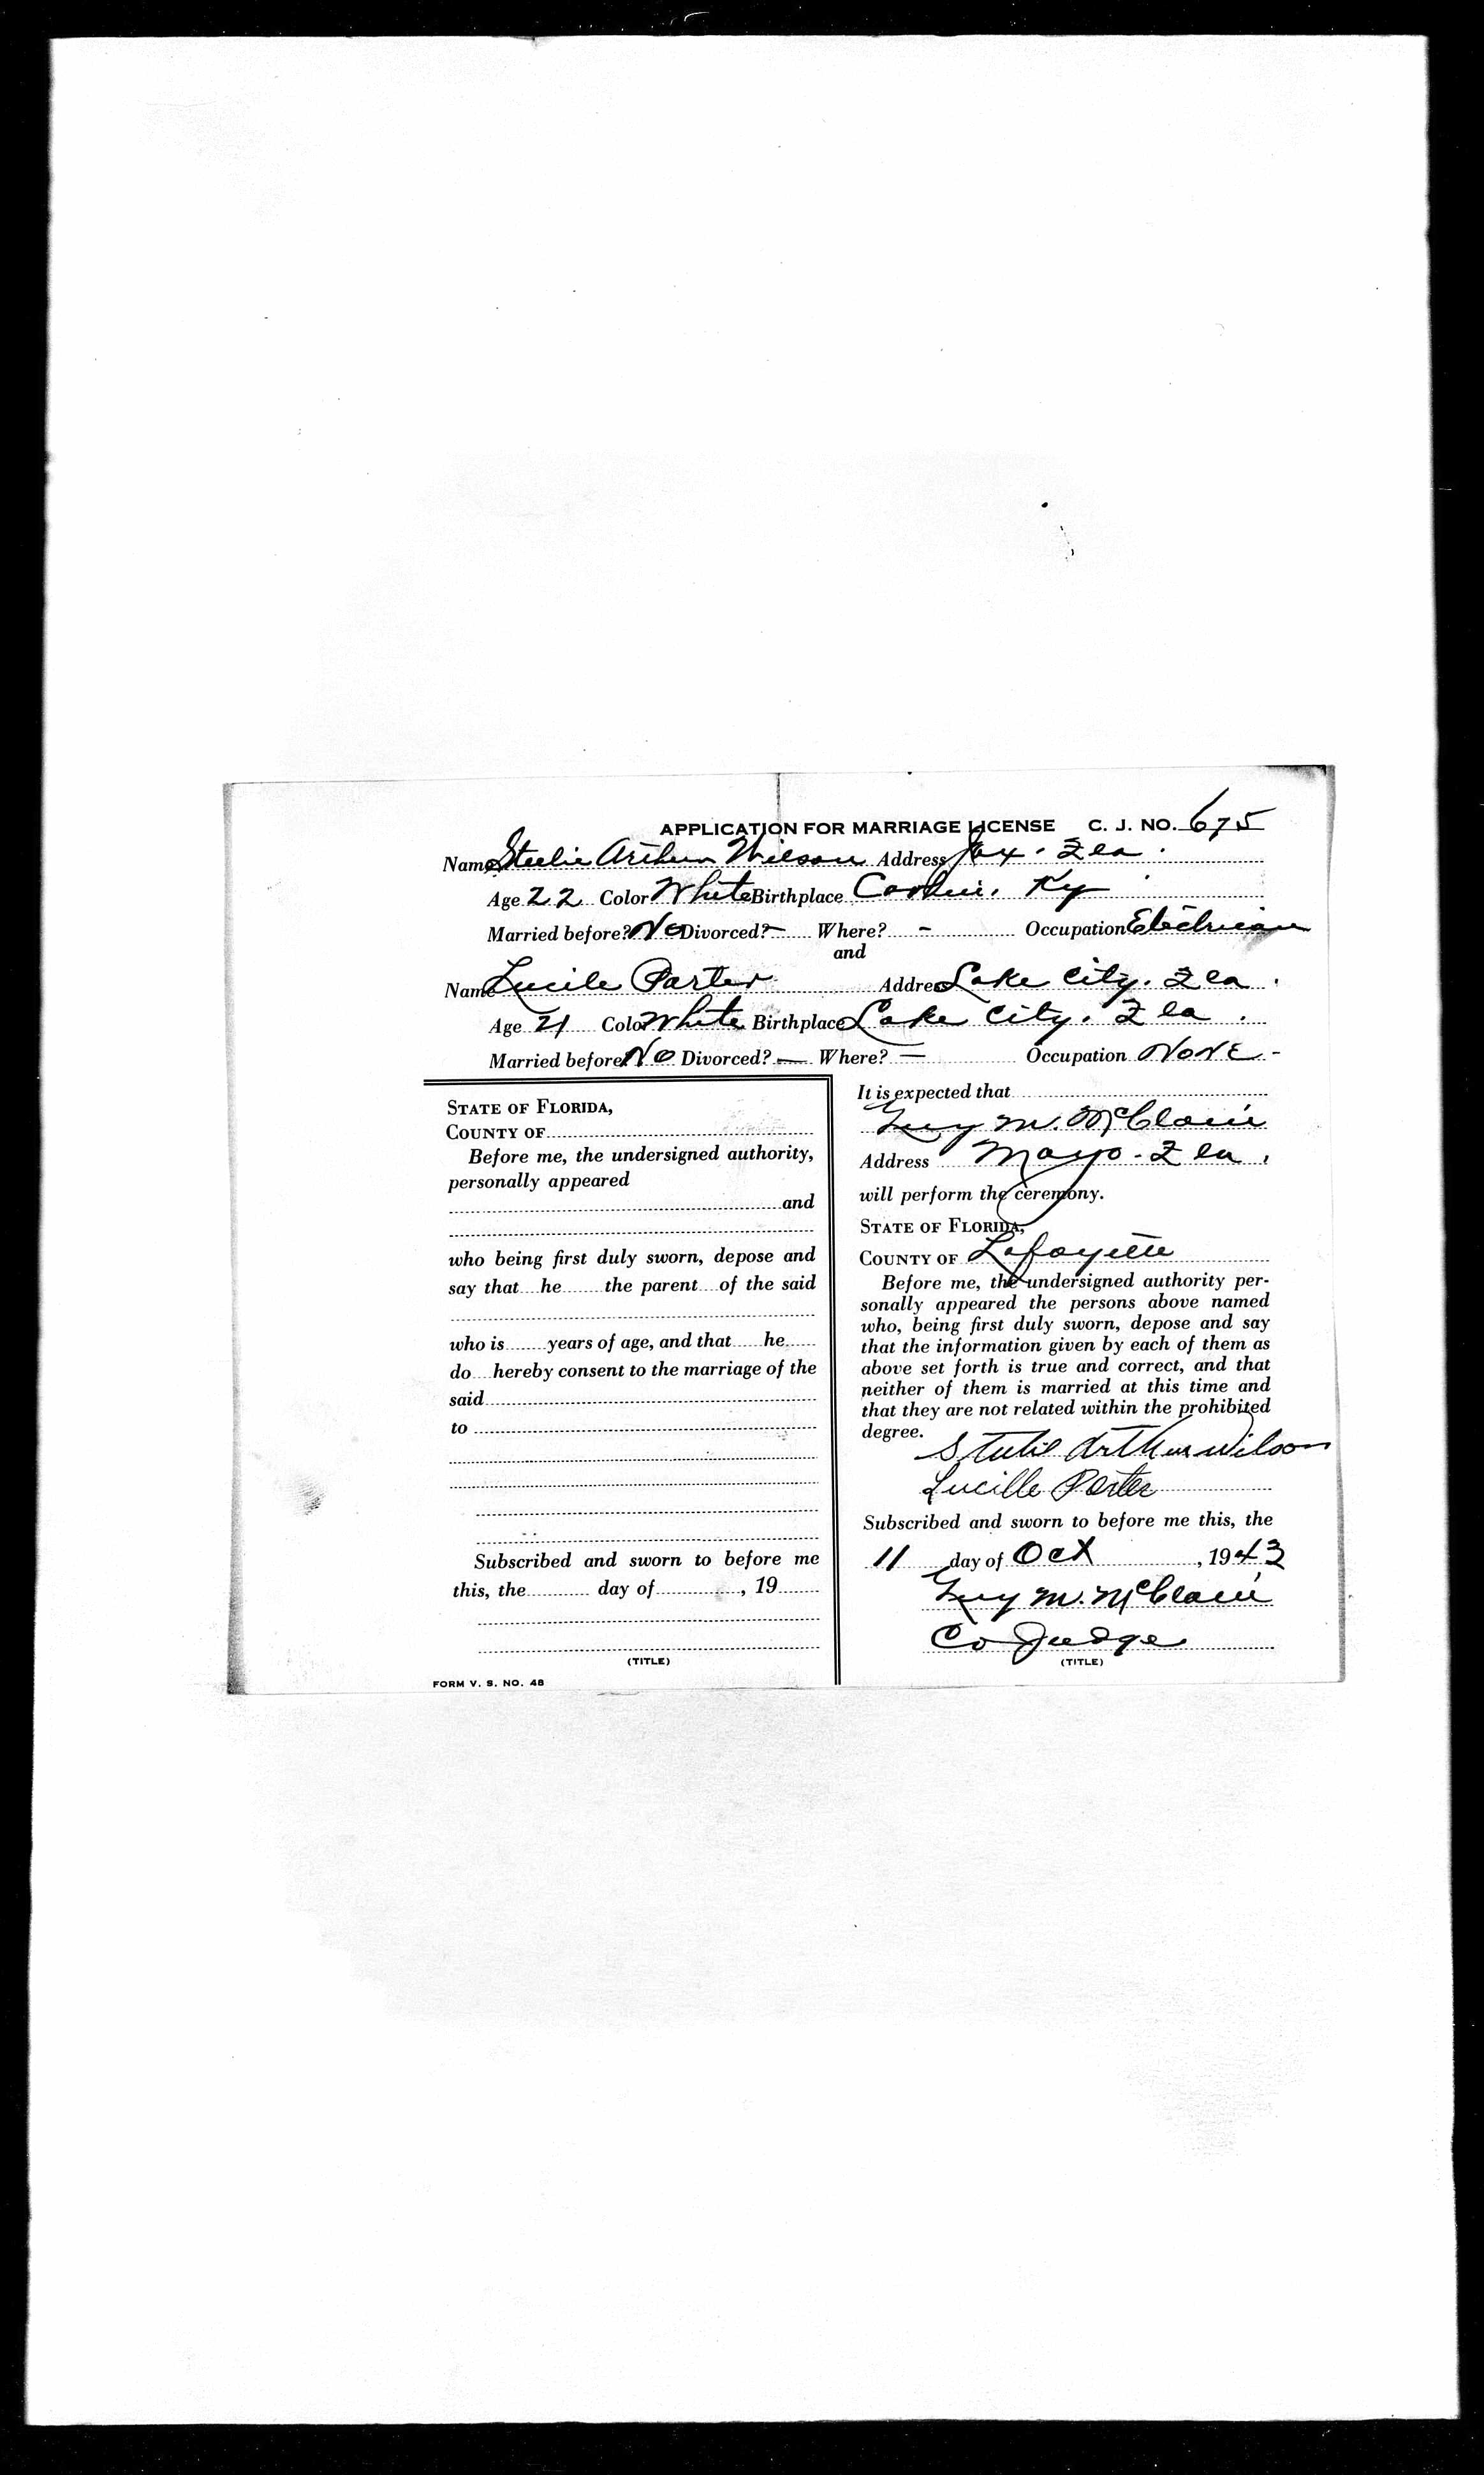 APPLICATION FOR MARRIAGE LICENSE C. J. NO. 675
Name Steelie Arthur Wilson Address Jax. Fla.
Age 22 Color White Birthplace Ky
Married before? No Divorced? – Where? – Occupation Electrician
and
Name Lucile Porter Address Lake City. Fla.
Age 21 Color White Birthplace Lake City. Fla.
Married before No Divorced? — Where? — Occupation NONE -
STATE OF FLORIDA,
COUNTY OF
Before me, the undersigned authority,
personally appeared
and
who being first duly sworn, depose and
say that he the parent of the said
who is years of age, and that he
do hereby consent to the marriage of the
said
to
Subscribed and sworn to before me
this, the day of , 19
(TITLE)
FORM V. S. NO. 48
It is expected that
Guy M. McClain
Address Mayo - Fla.
will perform the ceremony.
STATE OF FLORIDA,
COUNTY OF Lafayette
Before me, the undersigned authority per-
sonally appeared the persons above named
who, being first duly sworn, depose and say
that the information given by each of them as
above set forth is true and correct, and that
neither of them is married at this time and
that they are not related within the prohibited
degree.
Arthur Wilson
Lucille Porter
Subscribed and sworn to before me this, the
11 day of Oct , 1943
Guy M. McClain
Co Judge
(TITLE)